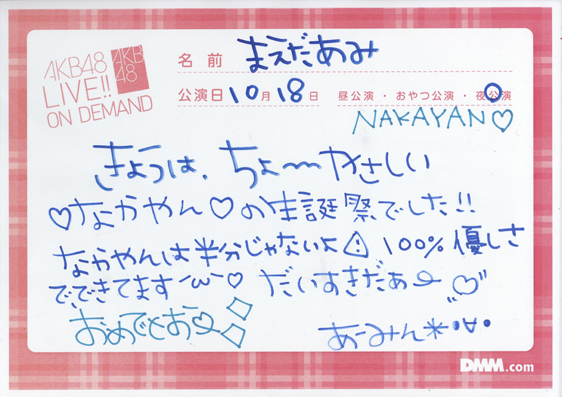 AKB48
LIVE!!
ON DEMAND
AKB
48
名前 まえだあみ
公演日 10月18日 昼公演・おやつ公演・夜公演
NAKAYAN♡
きょうは、ちょ〜〜やさしい
♡なかやん♡の生誕祭でした!!
なかやんは半分じゃないよ⚠ 100%優しさ
でできてます´ω`♡ だいすきだぁ
おめでとお
あーみん*･∀･
DMM.com